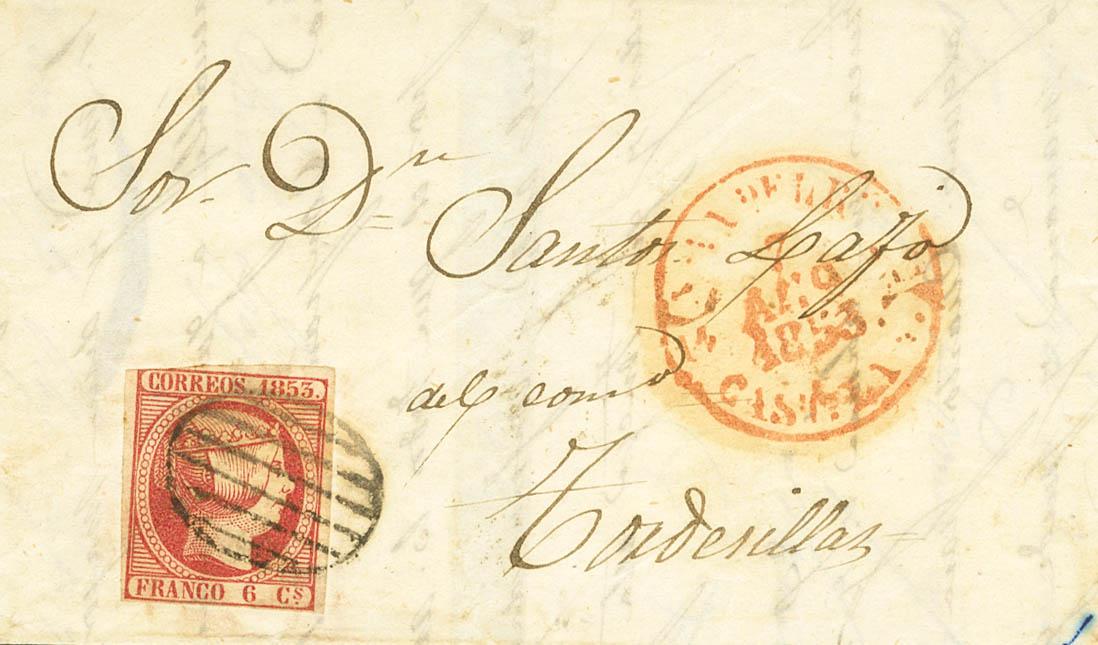 Sor. Dn Santos Lajo
del com.o
Tordesillas
CORREOS. 1853.
FRANCO 6 CS
AGO
1853
CAST